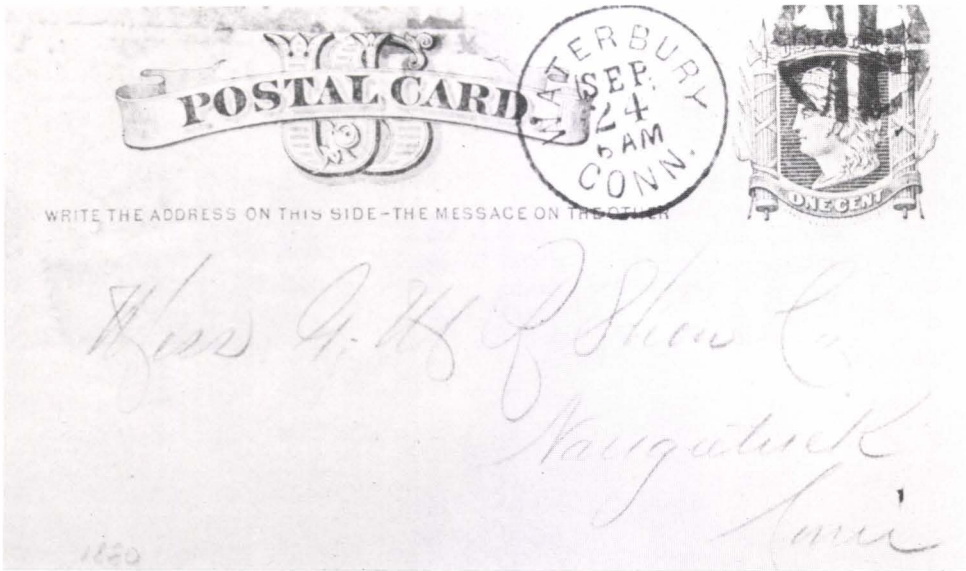 U S
POSTAL CARD
WATERBURY
SEP.
24
6 AM
CONN.
U.S. POSTAGE
ONE CENT
WRITE THE ADDRESS ON THIS SIDE–THE MESSAGE ON THE OTHER
Co
Naugatuck
Conn
1880